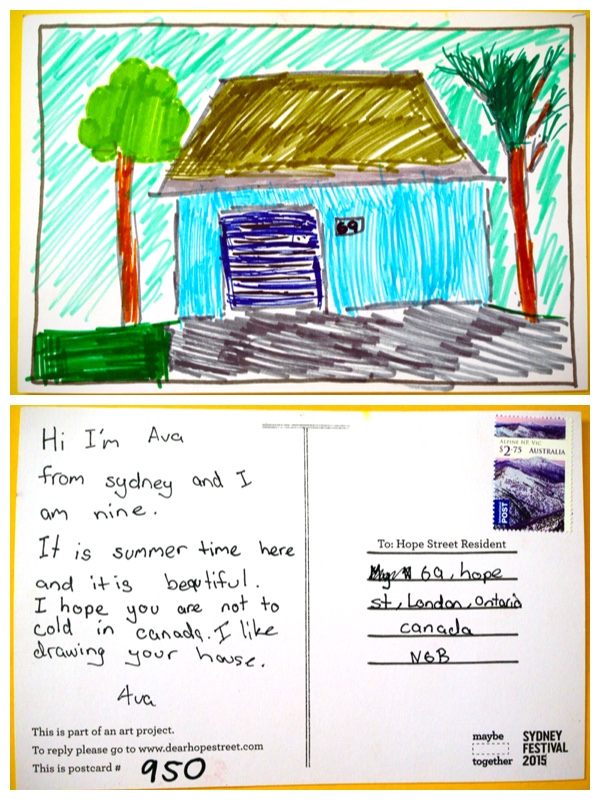 69
Hi I'm Ava
from sydney and I
am nine.
It is summer time here
and it is beautiful.
I hope you are not to
cold in canada. I like
drawing your house.
Ava
This is part of an art project.
To reply please go to www.dearhopestreet.com
This is postcard # 950
ALPINE NP, VIC
$2.75 AUSTRALIA
POST
To: Hope Street Resident
69, hope
st, London, Ontario
canada
N6B
maybe
together
SYDNEY
FESTIVAL
2015